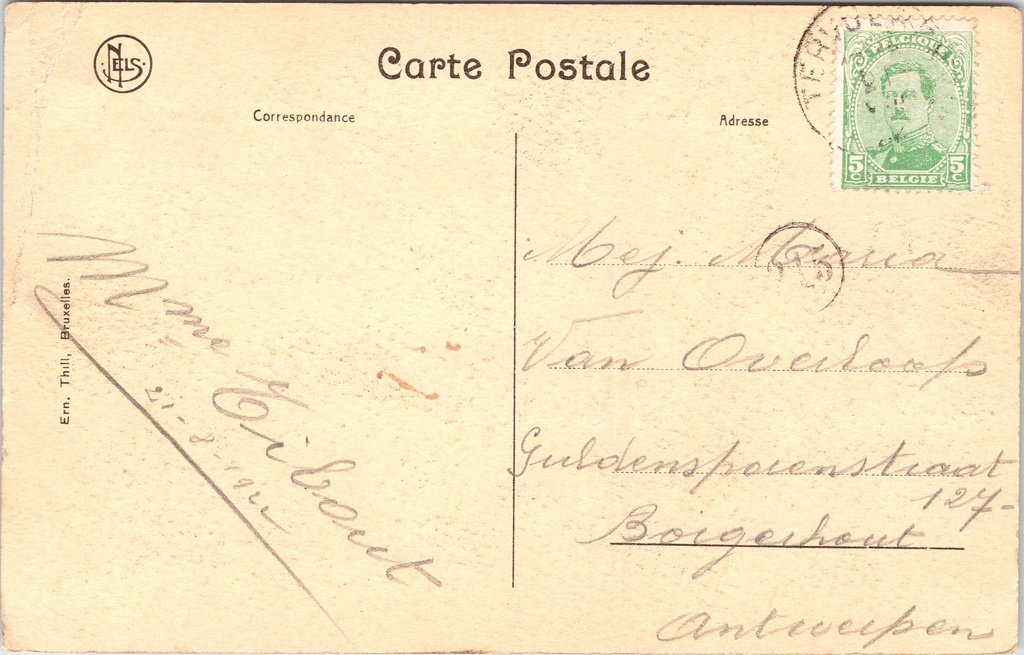 NELS
Carte Postale
Correspondance
Adresse
TERVUEREN
BELGIQUE
5 C
BELGIE
5 C
Ern. Thill, Bruxelles.
Mme Tibout
21-8-1922
Mej. Maria
Van Overloop
Guldensporenstraat
127-
Borgerhout
Antwerpen